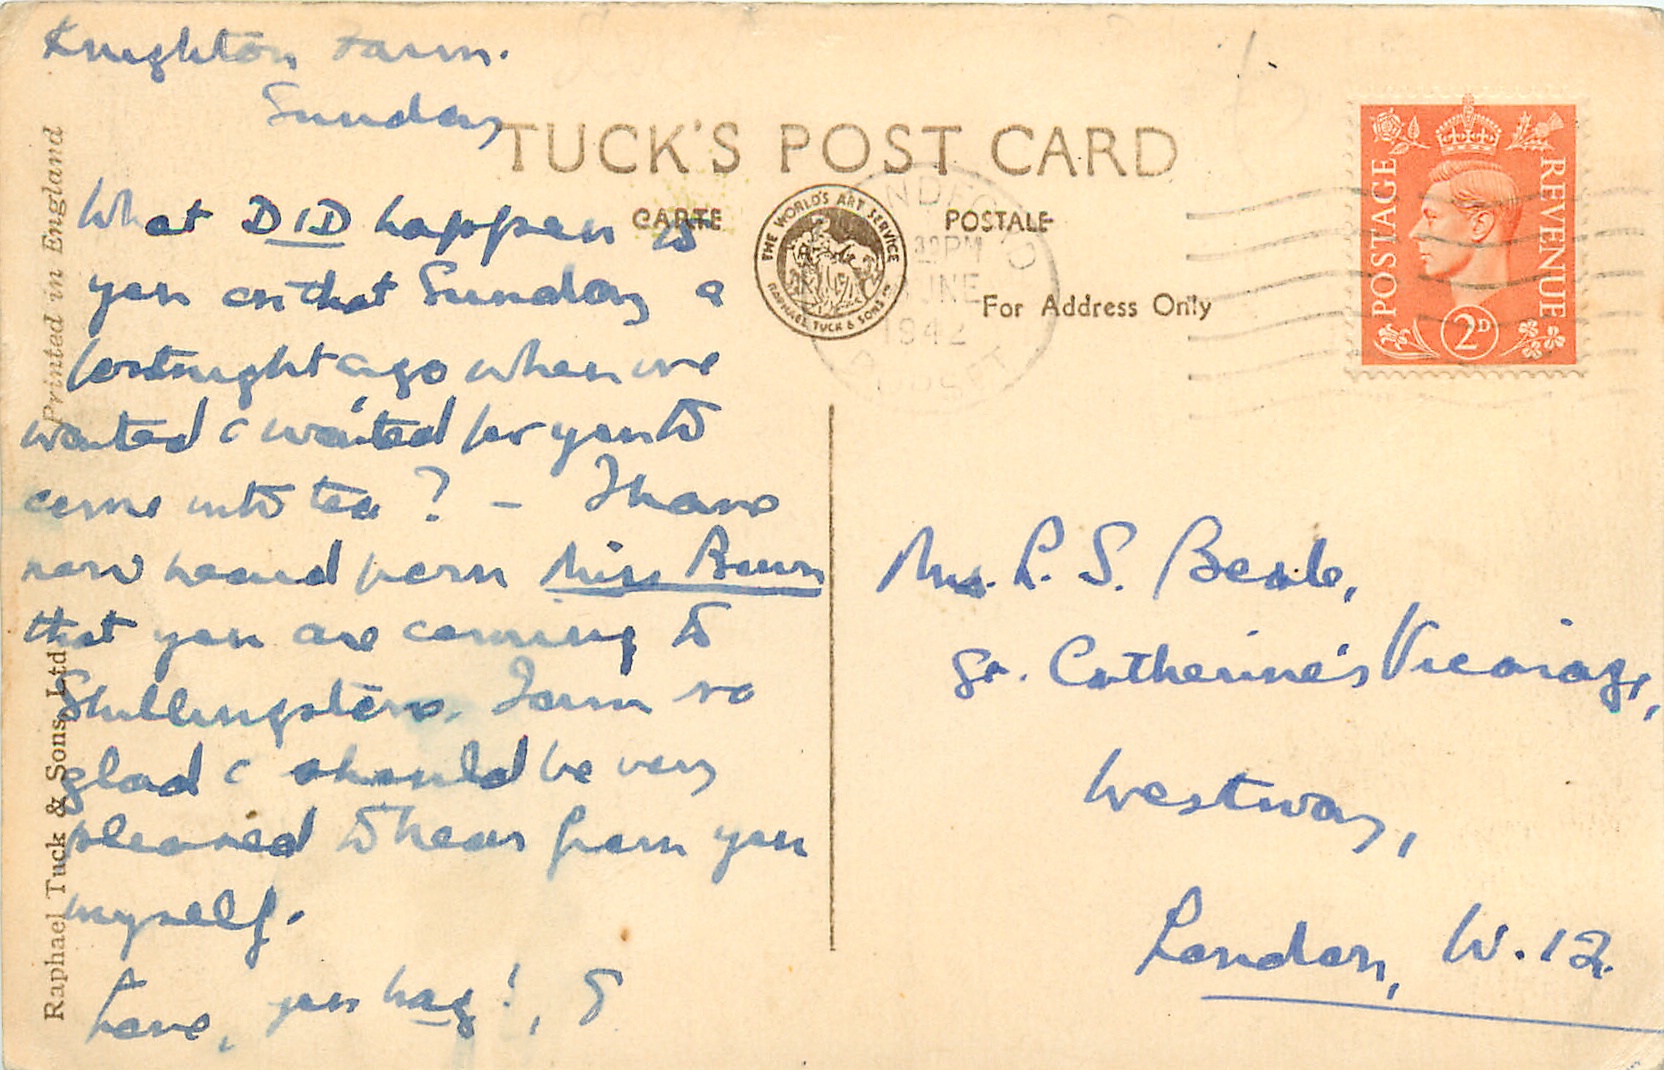 Knighton Farm.
Sunday
What DID happen to
you on that Sunday a
fortnight ago when we
waited & waited for you to
come into tea? – I have
now heard from Miss Brown
that you are coming to
Shillingstone. I am so
glad & should be very
pleased to hear from you
myself.
Love, you hag!, G
Printed in England
Raphael Tuck & Sons, Ltd
TUCK'S POST CARD
CARTE POSTALE
THE WORLD'S ART SERVICE
RAPHAEL TUCK & SONS LTD
For Address Only
30 PM
JUNE
1942
DORSET
POSTAGE REVENUE
2D
Mrs. L. S. Beale,
St. Catherine's Vicarage,
Westway,
London, W.12.